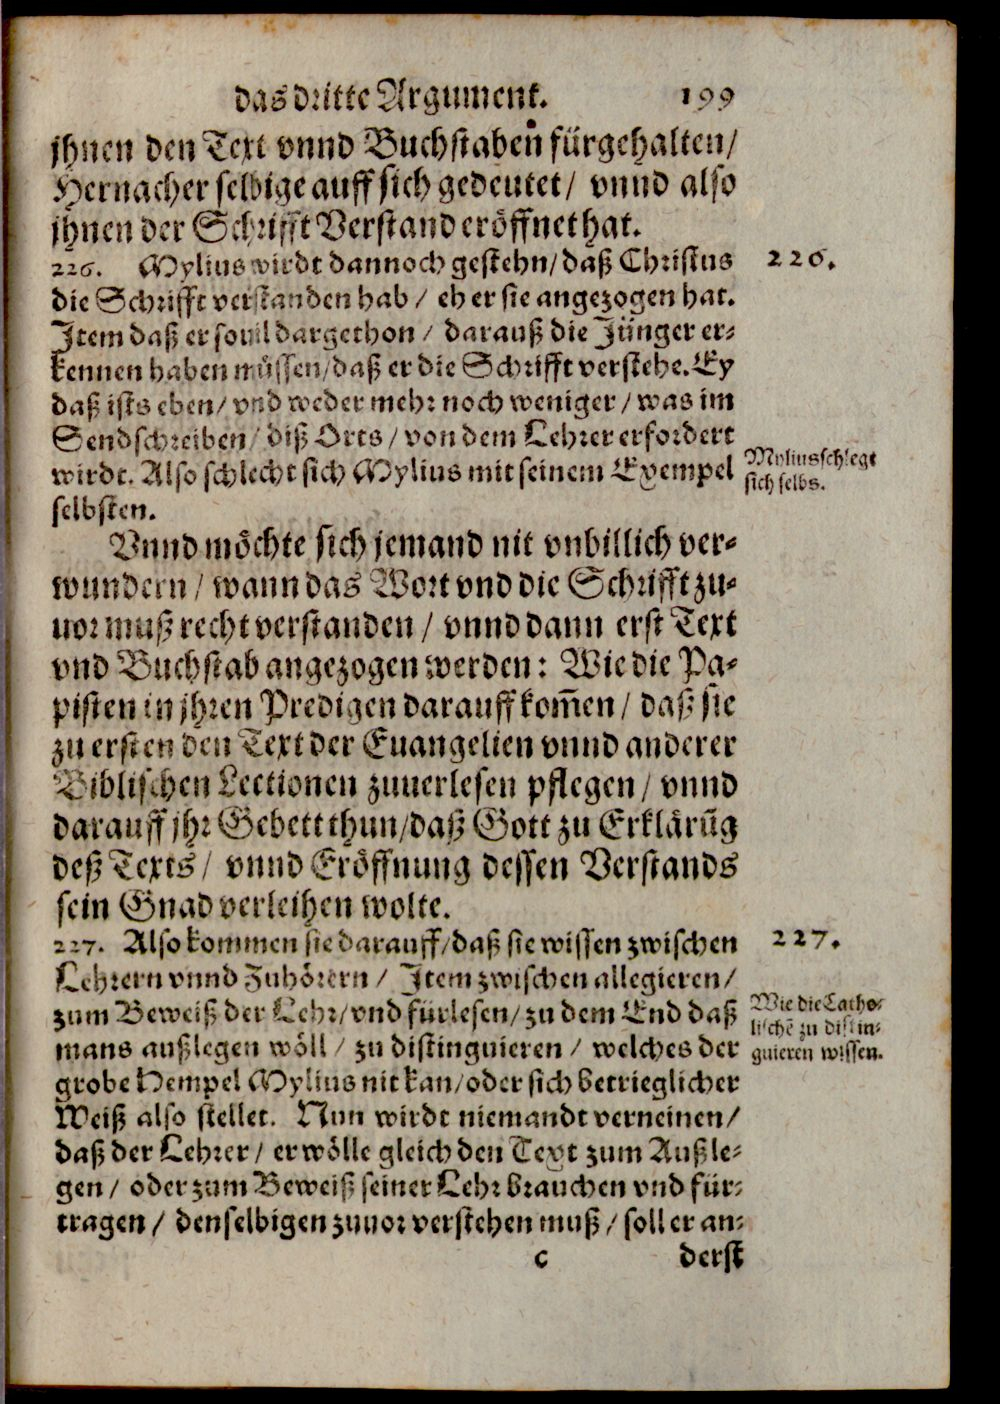 das dritte Argument. 199
jhnen den Text vnnd Buchstabeñ fürgehalten/
Hernacher selbige auff sich gedeutet/ vnnd also
jhnen der Schrifft Verstand eröffnet hat.
226. Mylius wirdt dannoch gestehn/ daß Christus
226.
die Schrifft verstanden hab/ eh er sie angezogen hat.
Item daß er souil dargethon/ darauß die Jünger er-
kennen haben müssen/ daß er die Schrifft verstehe. Ey
daß ists eben/ vnd weder mehr noch weniger/ was im
Sendschreiben/ diß Orts/ von dem Lehrer erfordert
wirdt. Also schlecht sich Mylius mit seinem Exempel
selbsten.
Mylius schlegt
sich selbs.
Vnnd möchte sich jemand nit vnbillich ver-
wundern/ wann das Wort vnd die Schrifft zu-
uor muß recht verstanden/ vnnd dann erst Text
vnd Buchstab angezogen werden: Wie die Pa-
pisten in jhren Predigen darauff kom̃en/ daß sie
zu ersten den Text der Euangelien vnnd anderer
Biblischen Lectionen zuuerlesen pflegen/ vnnd
darauff jhr Gebett thun/ daß Gott zu Erklärūg
deß Texts/ vnnd Eröffnung dessen Verstands
sein Gnad verleihen wolte.
227. Also kommen sie darauff/ daß sie wissen zwischen
227.
Lehrern vnnd Zuhörern/ Item zwischen allegieren/
zum Beweiß der Lehr/ vnd fürlesen/ zu dem End daß
mans außlegen wöll/ zu distinguieren/ welches der
Wie die Catho-
lischē zu distin-
guieren wissen.
grobe Hempel Mylius nit kan/ oder sich betrieglicher
Weiß also stellet. Nun wirdt niemandt verneinen/
daß der Lehrer/ er wölle gleich den Text zum Außle-
gen/ oder zum Beweiß seiner Lehr brauchen vnd für-
tragen/ denselbigen zuuor verstehen muß/ soll er an-
c derst